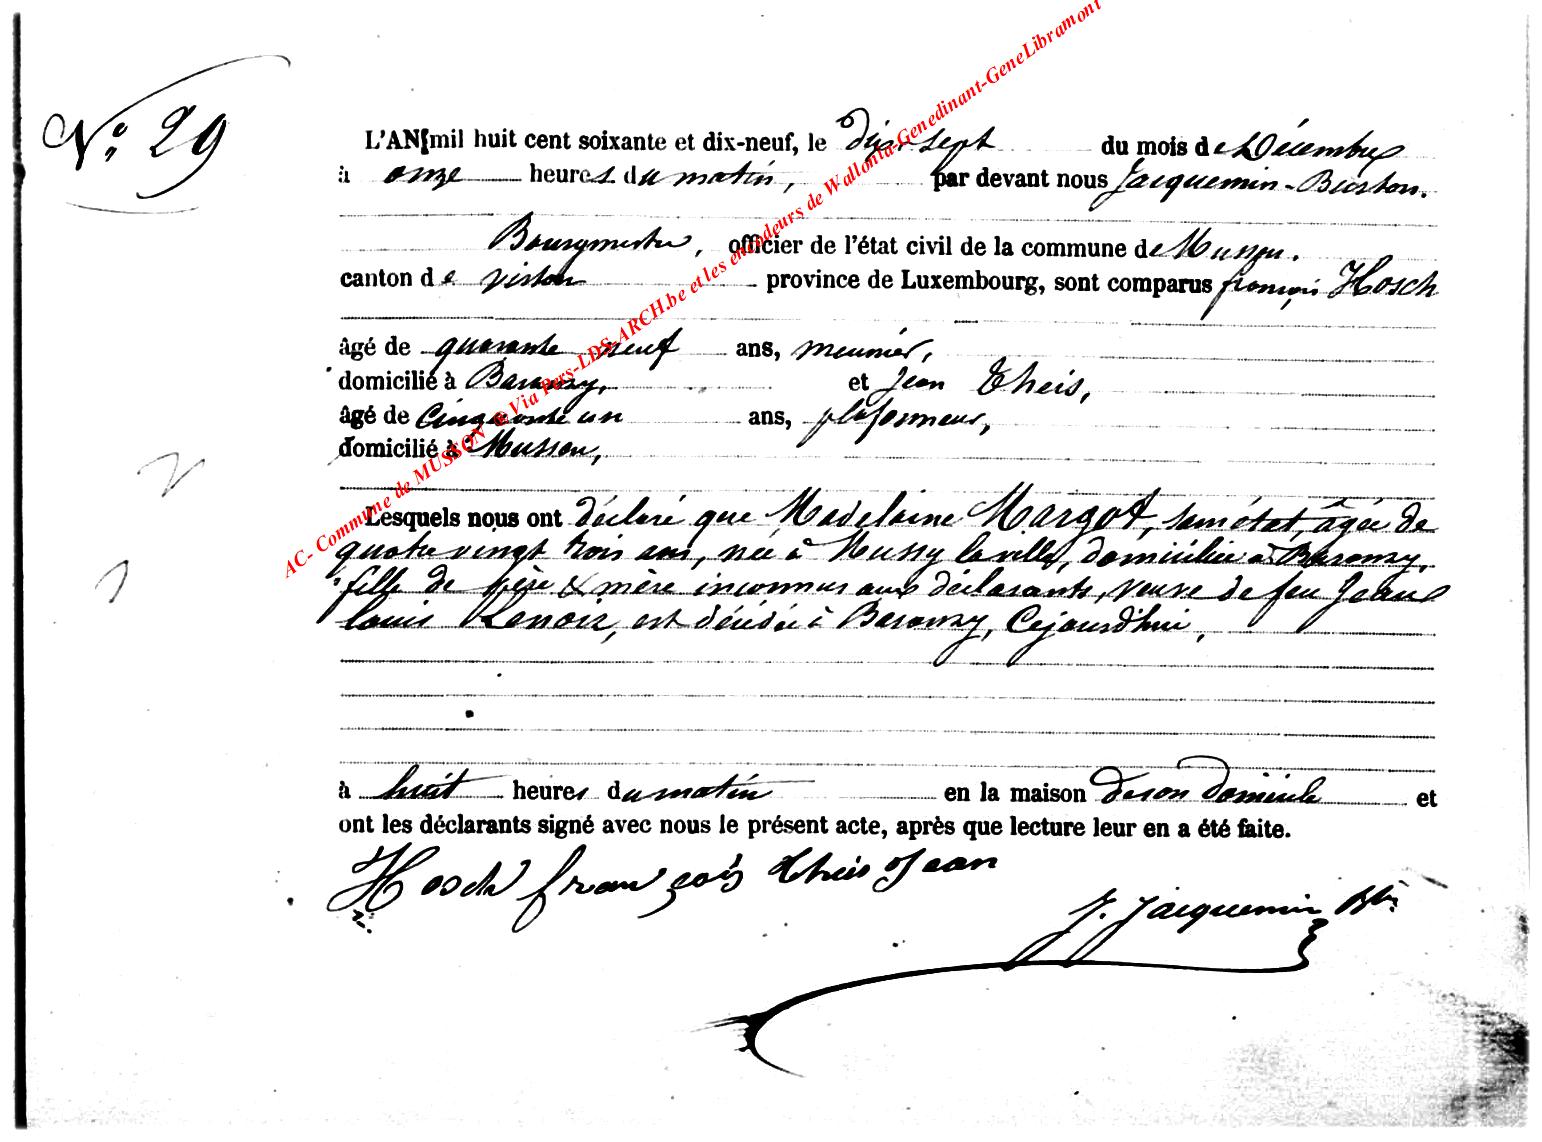 N.º 29
L'AN mil huit cent soixante et dix-neuf, le dix sept du mois de Décembre
à onze heures du matin, par devant nous Jacquemin-Burton.
Bourgmestre, officier de l'état civil de la commune de Musson.
canton de virton province de Luxembourg, sont comparus françois Hosch
âgé de quarante neuf ans, meunier,
domicilié à Baranzy, et Jean Theis,
âgé de Cinquante un ans, plafonneur,
domicilié à Musson,
Lesquels nous ont déclaré que Madelaine Margot, sans état, âgée de
quatre vingt trois ans, née à Mussy la ville, domiciliée à Baranzy,
fille de père & mère inconnus aux déclarants, veuve de feu Jean
louis Lenoir, est décédée à Baranzy, Cejourd'hui,
à huit heures du matin en la maison de son domicile et
ont les déclarants signé avec nous le présent acte, après que lecture leur en a été faite.
Hosch françois Theis Jean
J. Jacquemin
AC- Commune de MUSSON @ Via Pers-LDS-ARCH.be et les encodeurs de Wallonia-Genedinant-GeneLibramont